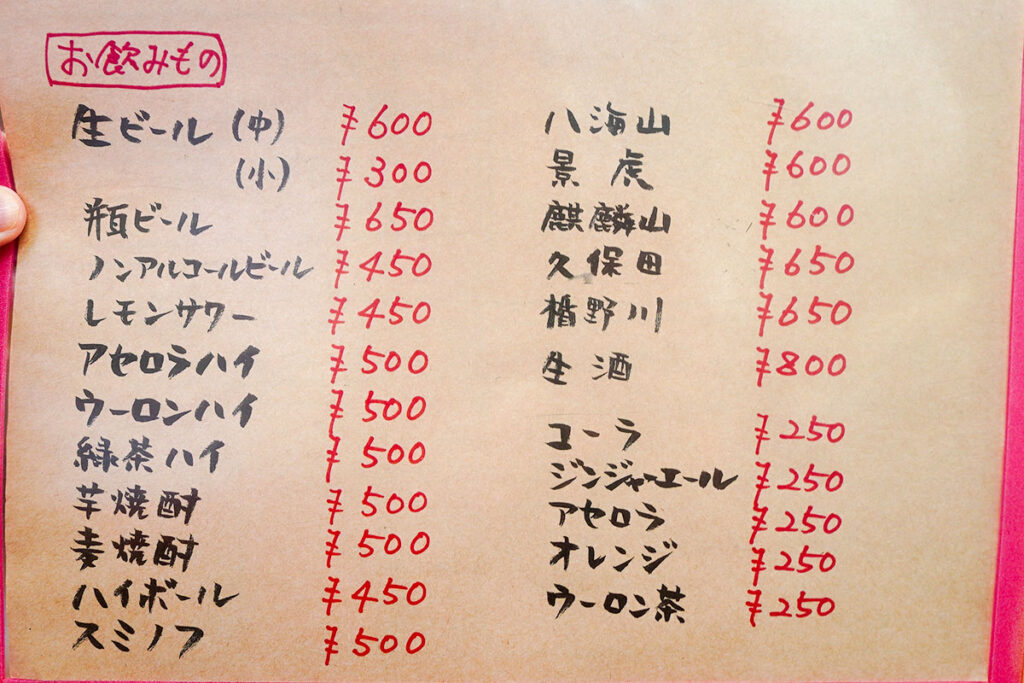 お飲みもの
生ビール (中) ¥600
(小) ¥300
瓶ビール ¥650
ノンアルコールビール ¥450
レモンサワー ¥450
アセロラハイ ¥500
ウーロンハイ ¥500
緑茶ハイ ¥500
芋焼酎 ¥500
麦焼酎 ¥500
ハイボール ¥450
スミノフ ¥500
八海山 ¥600
景虎 ¥600
麒麟山 ¥600
久保田 ¥650
楯野川 ¥650
生酒 ¥800
コーラ ¥250
ジンジャーエール ¥250
アセロラ ¥250
オレンジ ¥250
ウーロン茶 ¥250